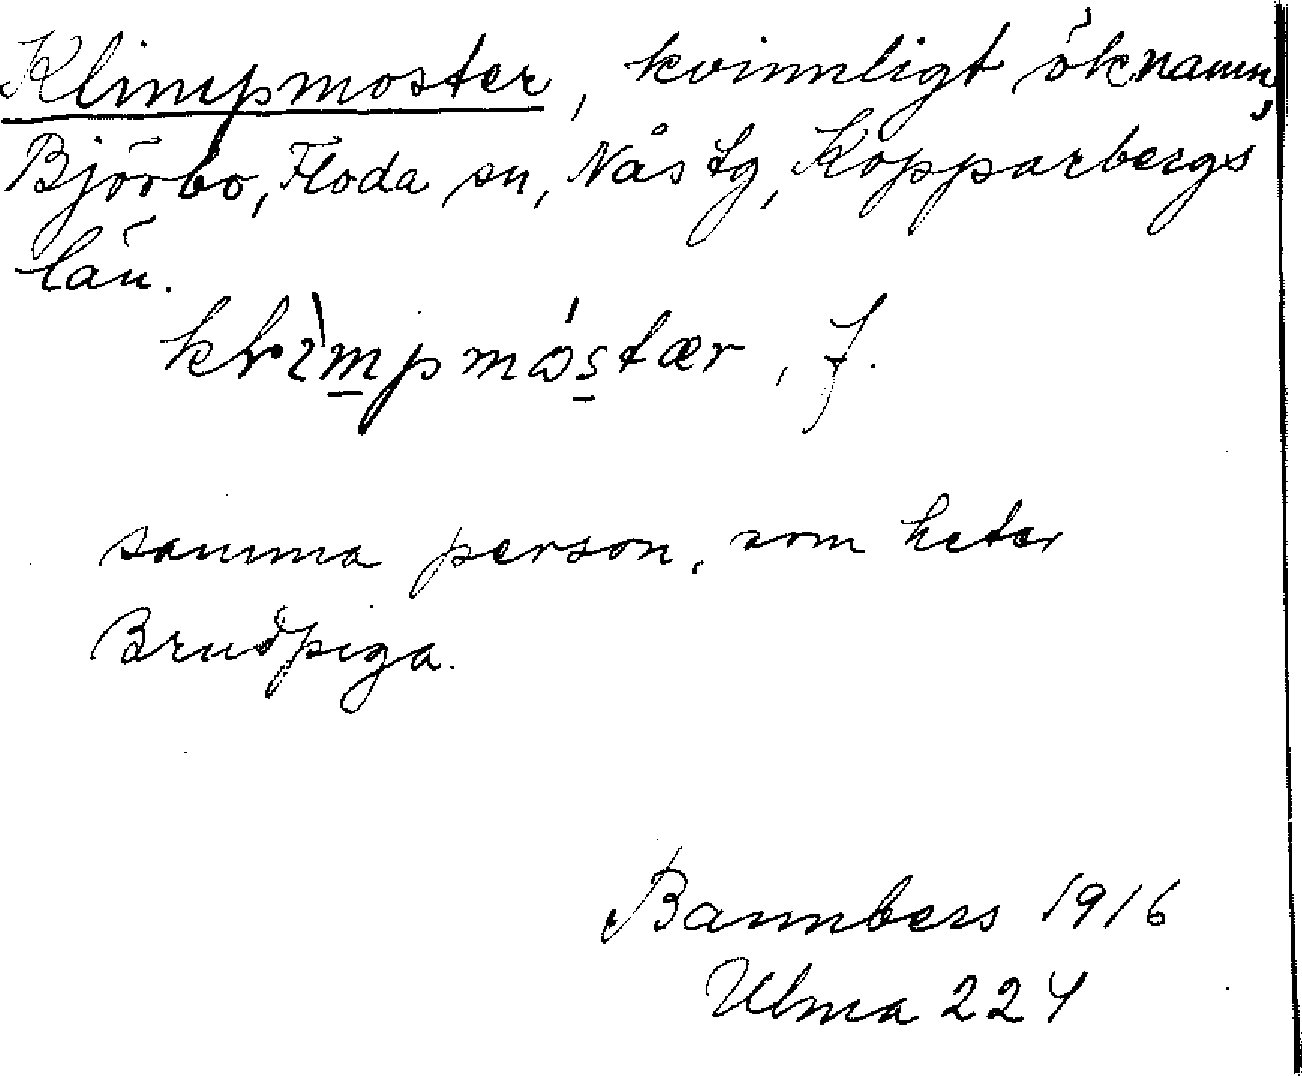 Klimpmoster, kvinnligt öknamn,
Björbo, Floda sn, Nås tg, Kopparbergs
län.
klìmpmóstær, f.
samma person, som heter
Brudpiga.
Bannbers 1916
Ulma 224